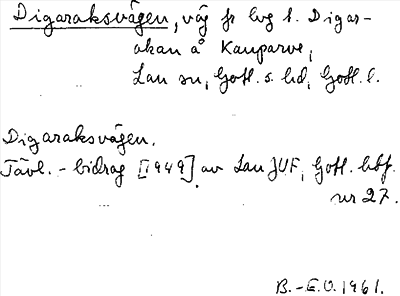 Digaraksvägen, väg fr lvg t. Digar-
akan å Kauparve,
Lau sn, Gotl. s. hd, Gotl. l.
Digaraksvägen.
Tävl.-bidrag [1949] av Lau JUF, Gotl. hbf.
nr 27.
B.-E.O. 1961.